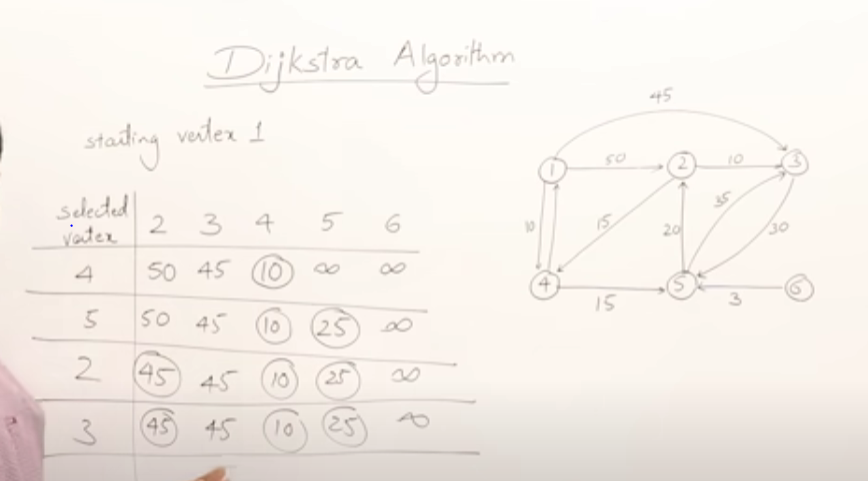 Dijkstra Algorithm
starting vertex 1
selected vertex 2 3 4 5 6
4 50 45 10 ∞ ∞
5 50 45 10 25 ∞
2 45 45 10 25 ∞
3 45 45 10 25 ∞
45
1 50 2 10 3
10 15 20 35 30
4 15 5 3 6